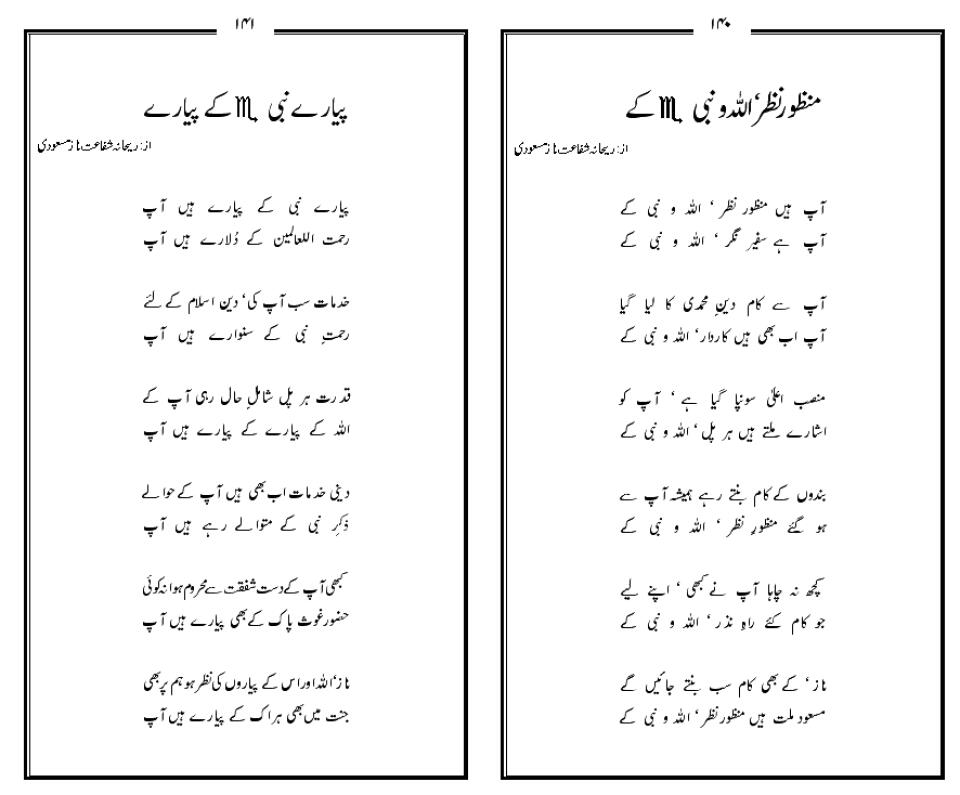 ۱۴۰
منظورِنظر، اللہ و نبی ♏ کے
از: ریحانہ شفاعت ناز مسعودی
آپ ہیں منظورِ نظر ، اللہ و نبی کے
آپ ہے سفیر نگر ، اللہ و نبی کے
آپ سے کام دینِ محمدی کا لیا گیا
آپ اب بھی ہیں کاردار، اللہ و نبی کے
منصب اعلیٰ سونپا گیا ہے ، آپ کو
اشارے ملتے ہیں ہر پل ، اللہ و نبی کے
بندوں کے کام بنتے رہے ہمیشہ آپ سے
ہو گئے منظورِ نظر ، اللہ و نبی کے
کچھ نہ چاہا آپ نے کبھی ، اپنے لیے
جو کام کئے راہِ نذر ، اللہ و نبی کے
ناز ، کے بھی کام سب بنتے جائیں گے
مسعود ملت ہیں منظورِنظر ، اللہ و نبی کے
۱۴۱
پیارے نبی ♏ کے پیارے
از: ریحانہ شفاعت ناز مسعودی
پیارے نبی کے پیارے ہیں آپ
رحمت اللعالمین کے دُلارے ہیں آپ
خدمات سب آپ کی، دین اسلام کے لئے
رحمتِ نبی کے سنوارے ہیں آپ
قدرت ہر پل شاملِ حال رہی آپ کے
اللہ کے پیارے کے پیارے ہیں آپ
دینی خدمات اب بھی ہیں آپ کے حوالے
ذکرِ نبی کے متوالے رہے ہیں آپ
کبھی آپ کے دست شفقت سے محروم ہوا نہ کوئی
حضور غوث پاک کے بھی پیارے ہیں آپ
ناز، اللہ اور اس کے پیاروں کی نظر ہو ہم پر بھی
جنت میں بھی ہر اک کے پیارے ہیں آپ